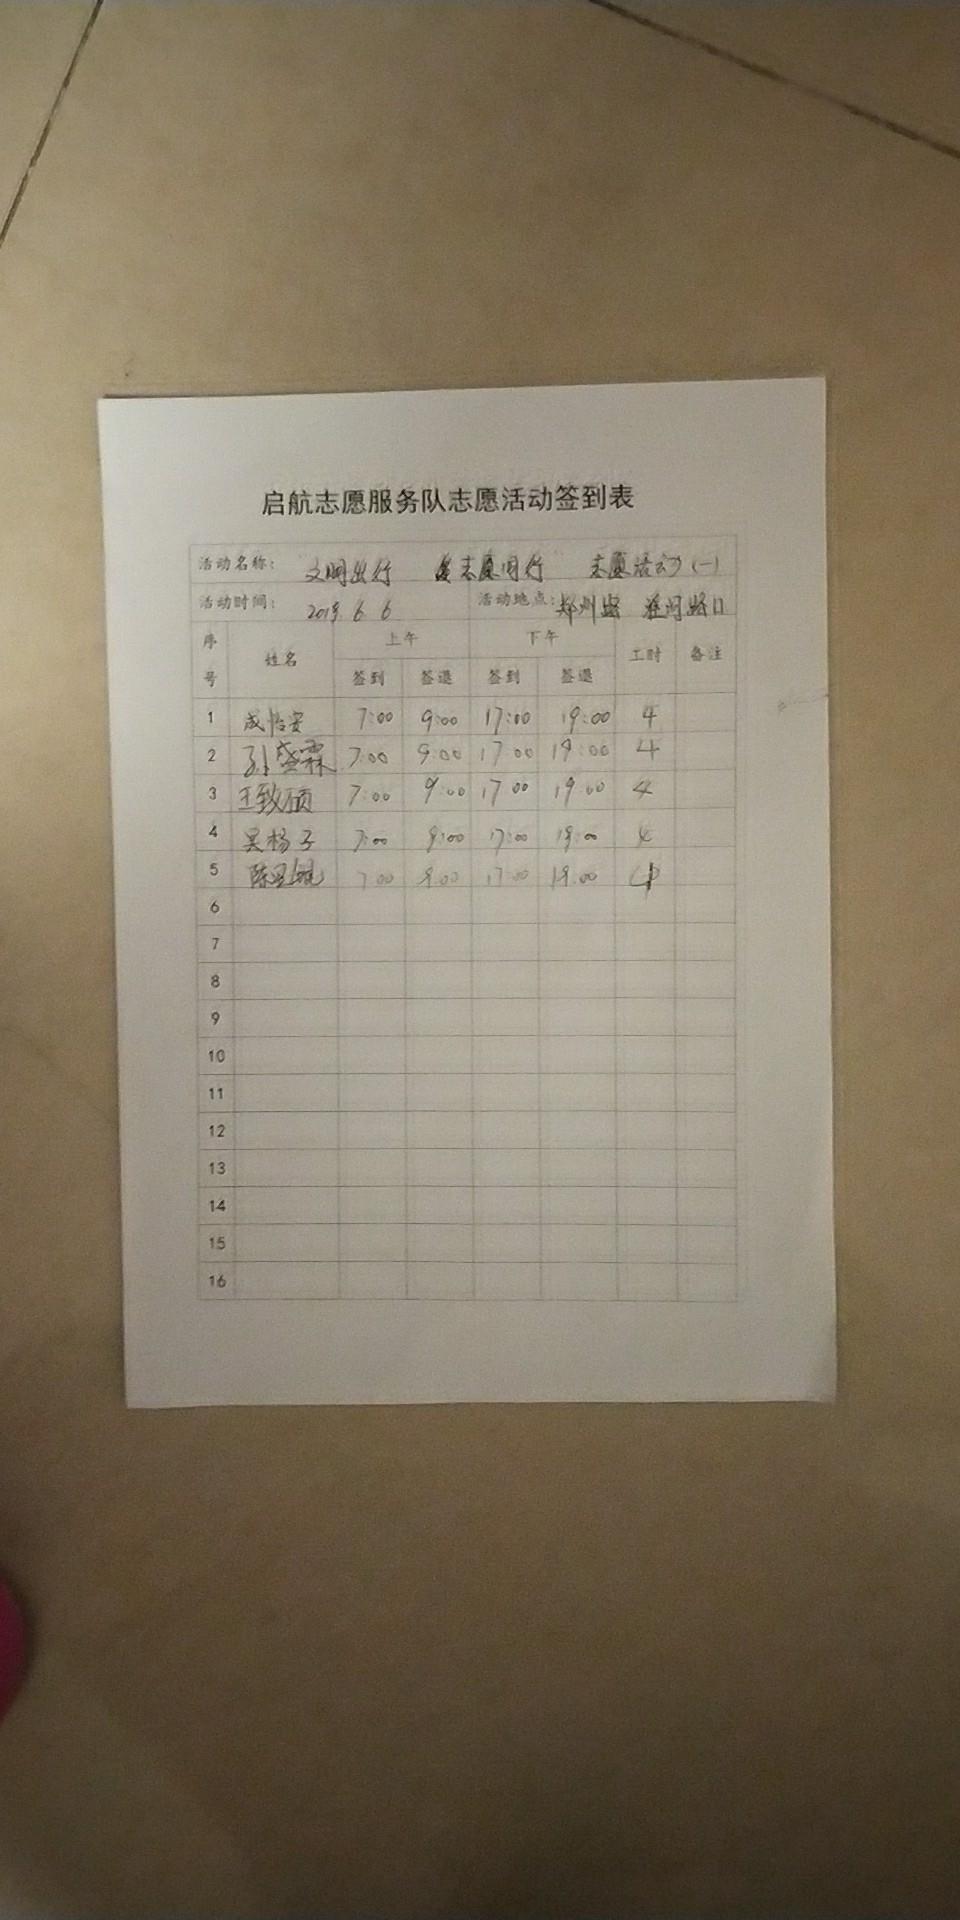 启航志愿服务队志愿活动签到表
活动名称: 文明出行 志愿同行 志愿活动(一)
活动时间: 2019.6.6 活动地点: 郑州路 路口
序号 姓名 上午 下午 工时 备注
签到 签退 签到 签退
1 成怡安 7:00 9:00 17:00 19:00 4
2 孙盛霖 7:00 9:00 17:00 19:00 4
3 王致硕 7:00 9:00 17:00 19:00 4
4 吴杨子 7:00 9:00 17:00 19:00 4
5 陈 7:00 9:00 17:00 19:00 4
6
7
8
9
10
11
12
13
14
15
16